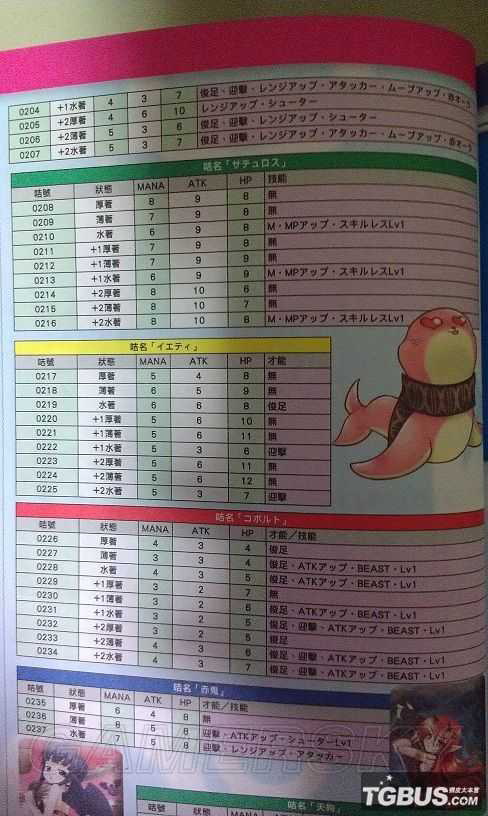 0204 +1水著 4 3 7 俊足、迎撃・レンジアップ・アタッカー・ムーブアップ・赤オーラ
0205 +2厚著 4 6 10 レンジアップ・シューター
0206 +2薄著 5 3 6 俊足、迎撃・レンジアップ・シューター
0207 +2水著 5 3 7 俊足、迎撃・レンジアップ・アタッカー・ムーブアップ・赤オーラ
咭名「サテュロス」
咭號 狀態 MANA ATK HP 技能
0208 厚著 8 9 8 無
0209 薄著 7 9 8 無
0210 水著 6 9 8 M・MPアップ・スキルレスLv1
0211 +1厚著 7 9 8 無
0212 +1薄著 7 9 8 無
0213 +1水著 6 9 9 M・MPアップ・スキルレスLv1
0214 +2厚著 8 10 6 無
0215 +2薄著 8 10 7 無
0216 +2水著 8 10 8 M・MPアップ・スキルレスLv1
咭名「イエティ」
咭號 狀態 MANA ATK HP 才能
0217 厚著 5 4 8 無
0218 薄著 6 5 9 無
0219 水著 6 6 8 俊足
0220 +1厚著 5 6 10 無
0221 +1薄著 5 6 11 無
0222 +1水著 5 3 6 迎撃
0223 +2厚著 5 6 11 無
0224 +2薄著 5 6 12 無
0225 +2水著 5 3 7 迎撃
咭名「コボルト」
咭號 狀態 MANA ATK HP 才能／技能
0226 厚著 4 3 4 俊足
0227 薄著 3 3 4 俊足・ATKアップ・BEAST・Lv1
0228 水著 4 3 5 俊足・ATKアップ・BEAST・Lv1
0229 +1厚著 3 2 7 無
0230 +1薄著 3 2 6 俊足・ATKアップ・BEAST・Lv1
0231 +1水著 3 2 5 俊足、迎撃・ATKアップ・BEAST・Lv1
0232 +2厚著 3 2 5 俊足
0233 +2薄著 4 3 6 俊足、迎撃・ATKアップ・BEAST・Lv1
0234 +2水著 4 3 7 俊足、迎撃・ATKアップ・BEAST・Lv1
咭名「赤鬼」
咭號 狀態 MANA ATK HP 才能／技能
0235 厚著 6 4 8 無
0236 薄著 8 5 8 迎撃・ATKアップ・シューターLv1
0237 水著 7 5 8 迎撃・レンジアップ・アタッカー
咭名「天狗」
咭號 狀態 MANA ATK HP
TGBUS.COM